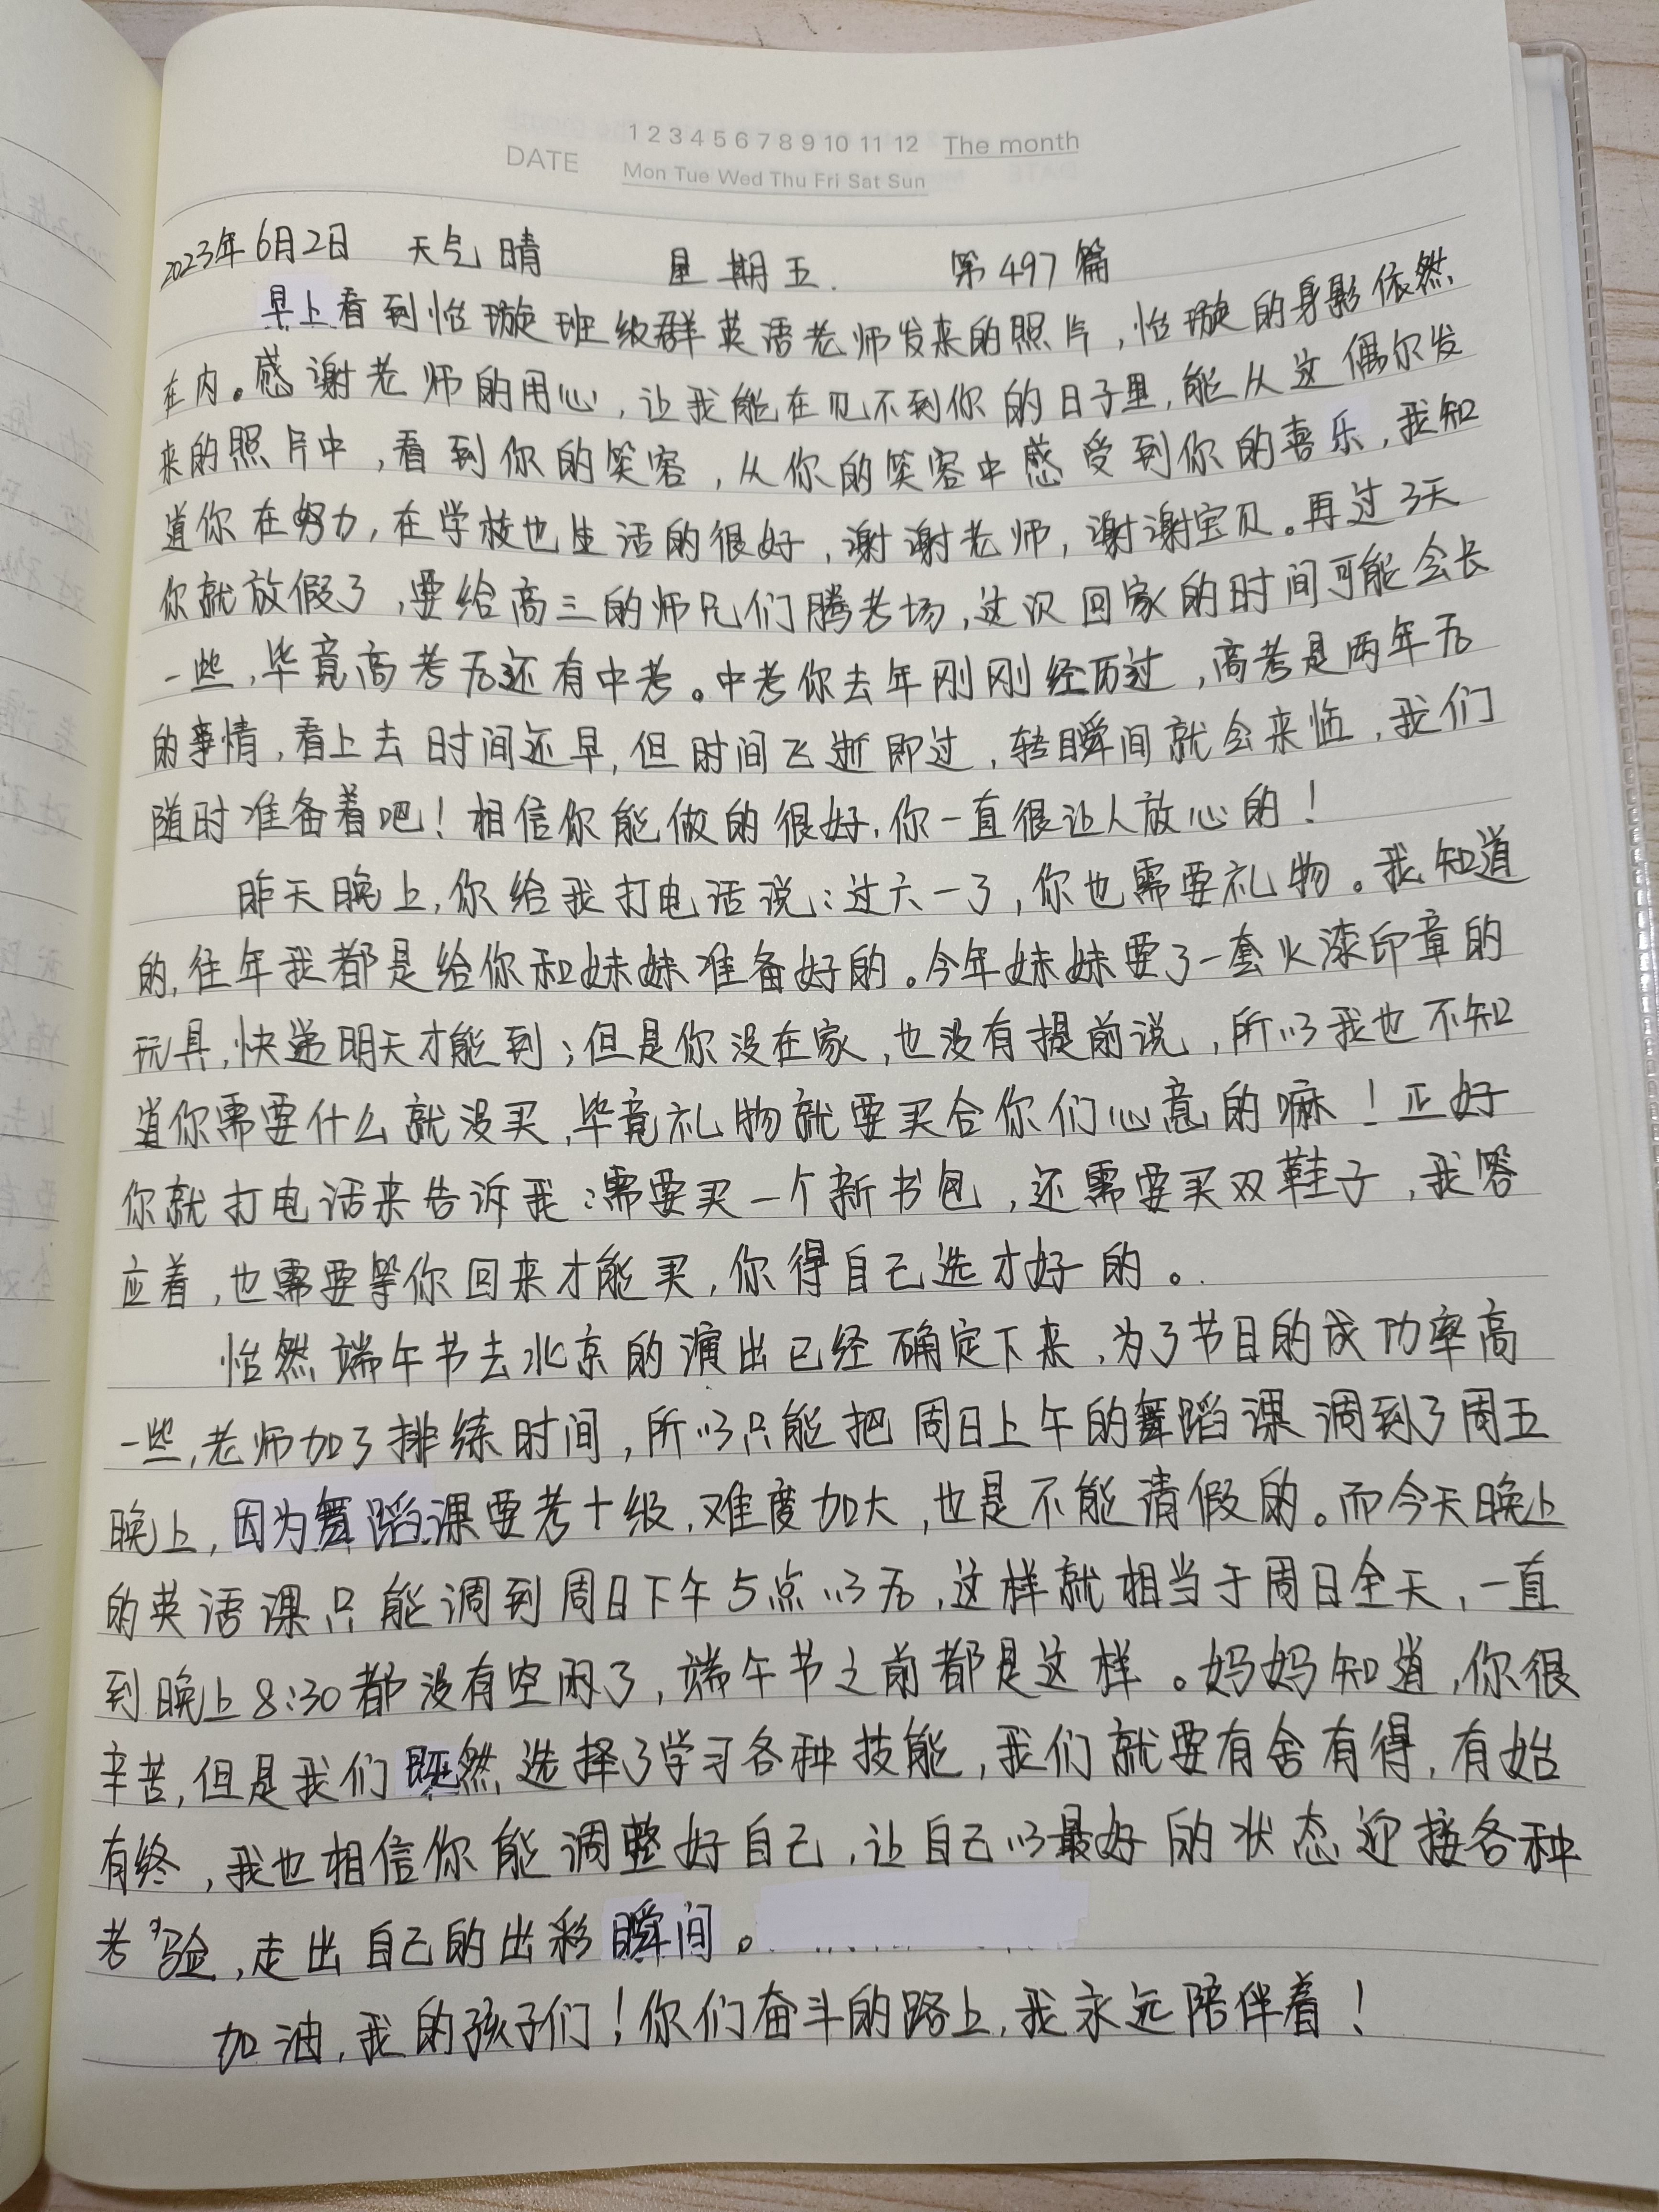 1 2 3 4 5 6 7 8 9 10 11 12 The month
DATE
Mon Tue Wed Thu Fri Sat Sun
2023年6月2日 天气晴 星期五. 第497篇
早上看到怡璇班级群英语老师发来的照片,怡璇的身影依然
在内。感谢老师的用心,让我能在见不到你的日子里,能从这偶尔发
来的照片中,看到你的笑容,从你的笑容中感受到你的喜乐,我知
道你在努力,在学校也生活的很好,谢谢老师,谢谢宝贝。再过3天
你就放假了,要给高三的师兄们腾考场,这次回家的时间可能会长
一些,毕竟高考后还有中考。中考你去年刚刚经历过,高考是两年后
的事情,看上去时间还早,但时间飞逝即过,转瞬间就会来临,我们
随时准备着吧!相信你能做的很好,你一直很让人放心的!
昨天晚上,你给我打电话说:过六一了,你也需要礼物。我知道
的,往年我都是给你和妹妹准备好的。今年妹妹要了一套火漆印章的
玩具,快递明天才能到;但是你没在家,也没有提前说,所以我也不知
道你需要什么就没买,毕竟礼物就要买合你们心意的嘛!正好
你就打电话来告诉我:需要买一个新书包,还需要买双鞋子,我答
应着,也需要等你回来才能买,你得自己选才好的。
怡然端午节去北京的演出已经确定下来,为了节目的成功率高
一些,老师加了排练时间,所以只能把周日上午的舞蹈课调到了周五
晚上,因为舞蹈课要考十级,难度加大,也是不能请假的。而今天晚上
的英语课只能调到周日下午5点以后,这样就相当于周日全天,一直
到晚上8:30都没有空闲了,端午节之前都是这样。妈妈知道,你很
辛苦,但是我们既然选择了学习各种技能,我们就要有舍有得,有始
有终,我也相信你能调整好自己,让自己以最好的状态迎接各种
考验,走出自己的出彩瞬间。
加油,我的孩子们!你们奋斗的路上,我永远陪伴着!